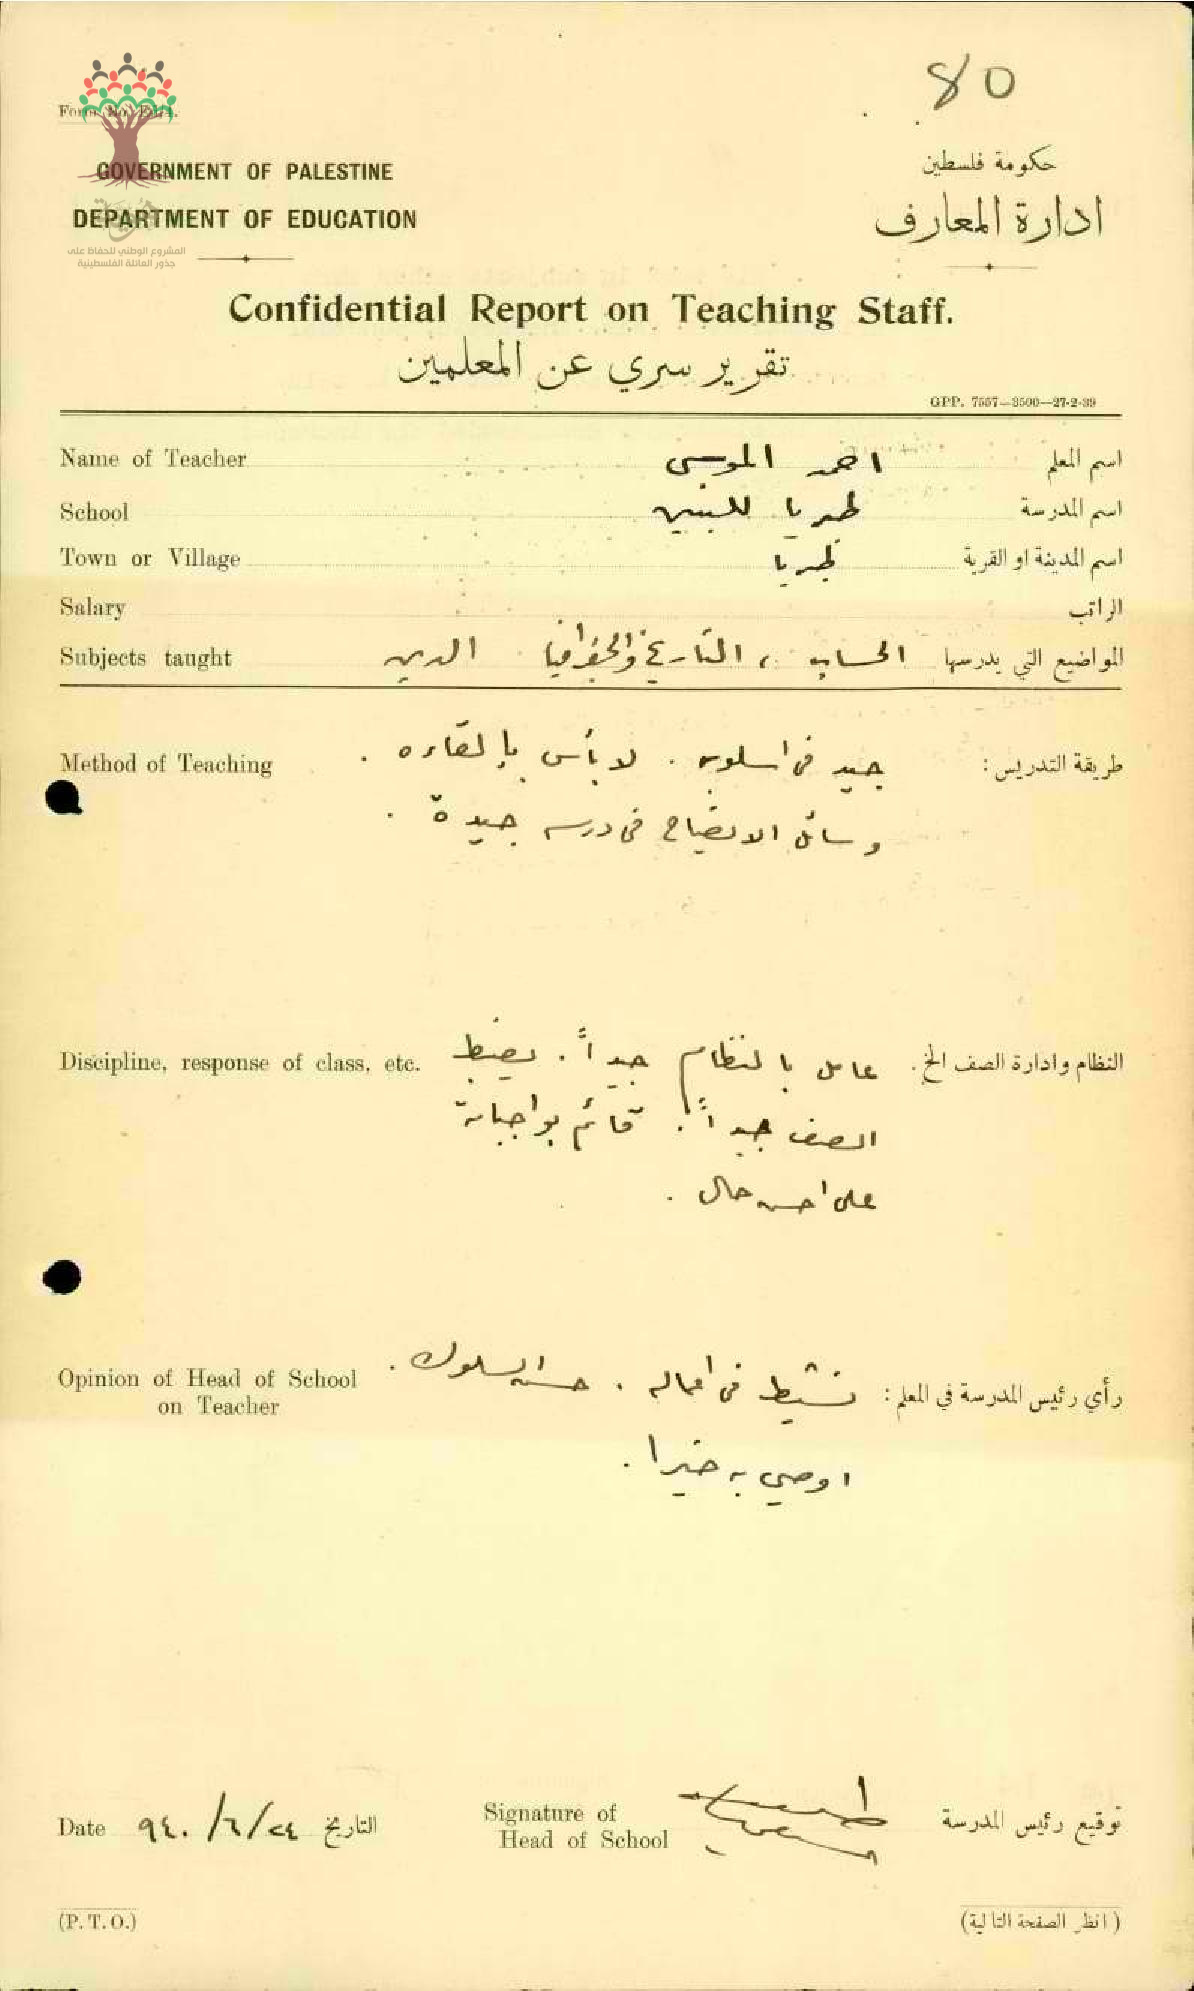 80
Form No. E.1/1.
GOVERNMENT OF PALESTINE
DEPARTMENT OF EDUCATION
المشروع الوطني للحفاظ على
جذور العائلة الفلسطينية
حكومة فلسطين
ادارة المعارف
Confidential Report on Teaching Staff.
تقرير سري عن المعلمين
GPP. 7557—3500—27-2-39
Name of Teacher احمد الموسى اسم المعلم
School طبريا للبنين اسم المدرسة
Town or Village طبريا اسم المدينة او القرية
Salary الراتب
Subjects taught الحساب ، التاريخ والجغرافيا الدين المواضيع التي يدرسها
Method of Teaching طريقة التدريس : جيد في اسلوبه . لا بأس بإلقاءه .
وسائل الايضاح في درسه جيدة .
Discipline, response of class, etc. النظام وادارة الصف الخ . عامل بالنظام جيداً . يضبط
الصف جيداً . قائم بواجباته
على احسن حال .
Opinion of Head of School
on Teacher
رأي رئيس المدرسة في المعلم : نشيط في اعماله . حسن السلوك .
اوصي به خيرا .
Date ٩٤٠/٦/٢٤ التاريخ
Signature of
Head of School
توقيع رئيس المدرسة
(P. T. O.)
( انظر الصفحة التالية )